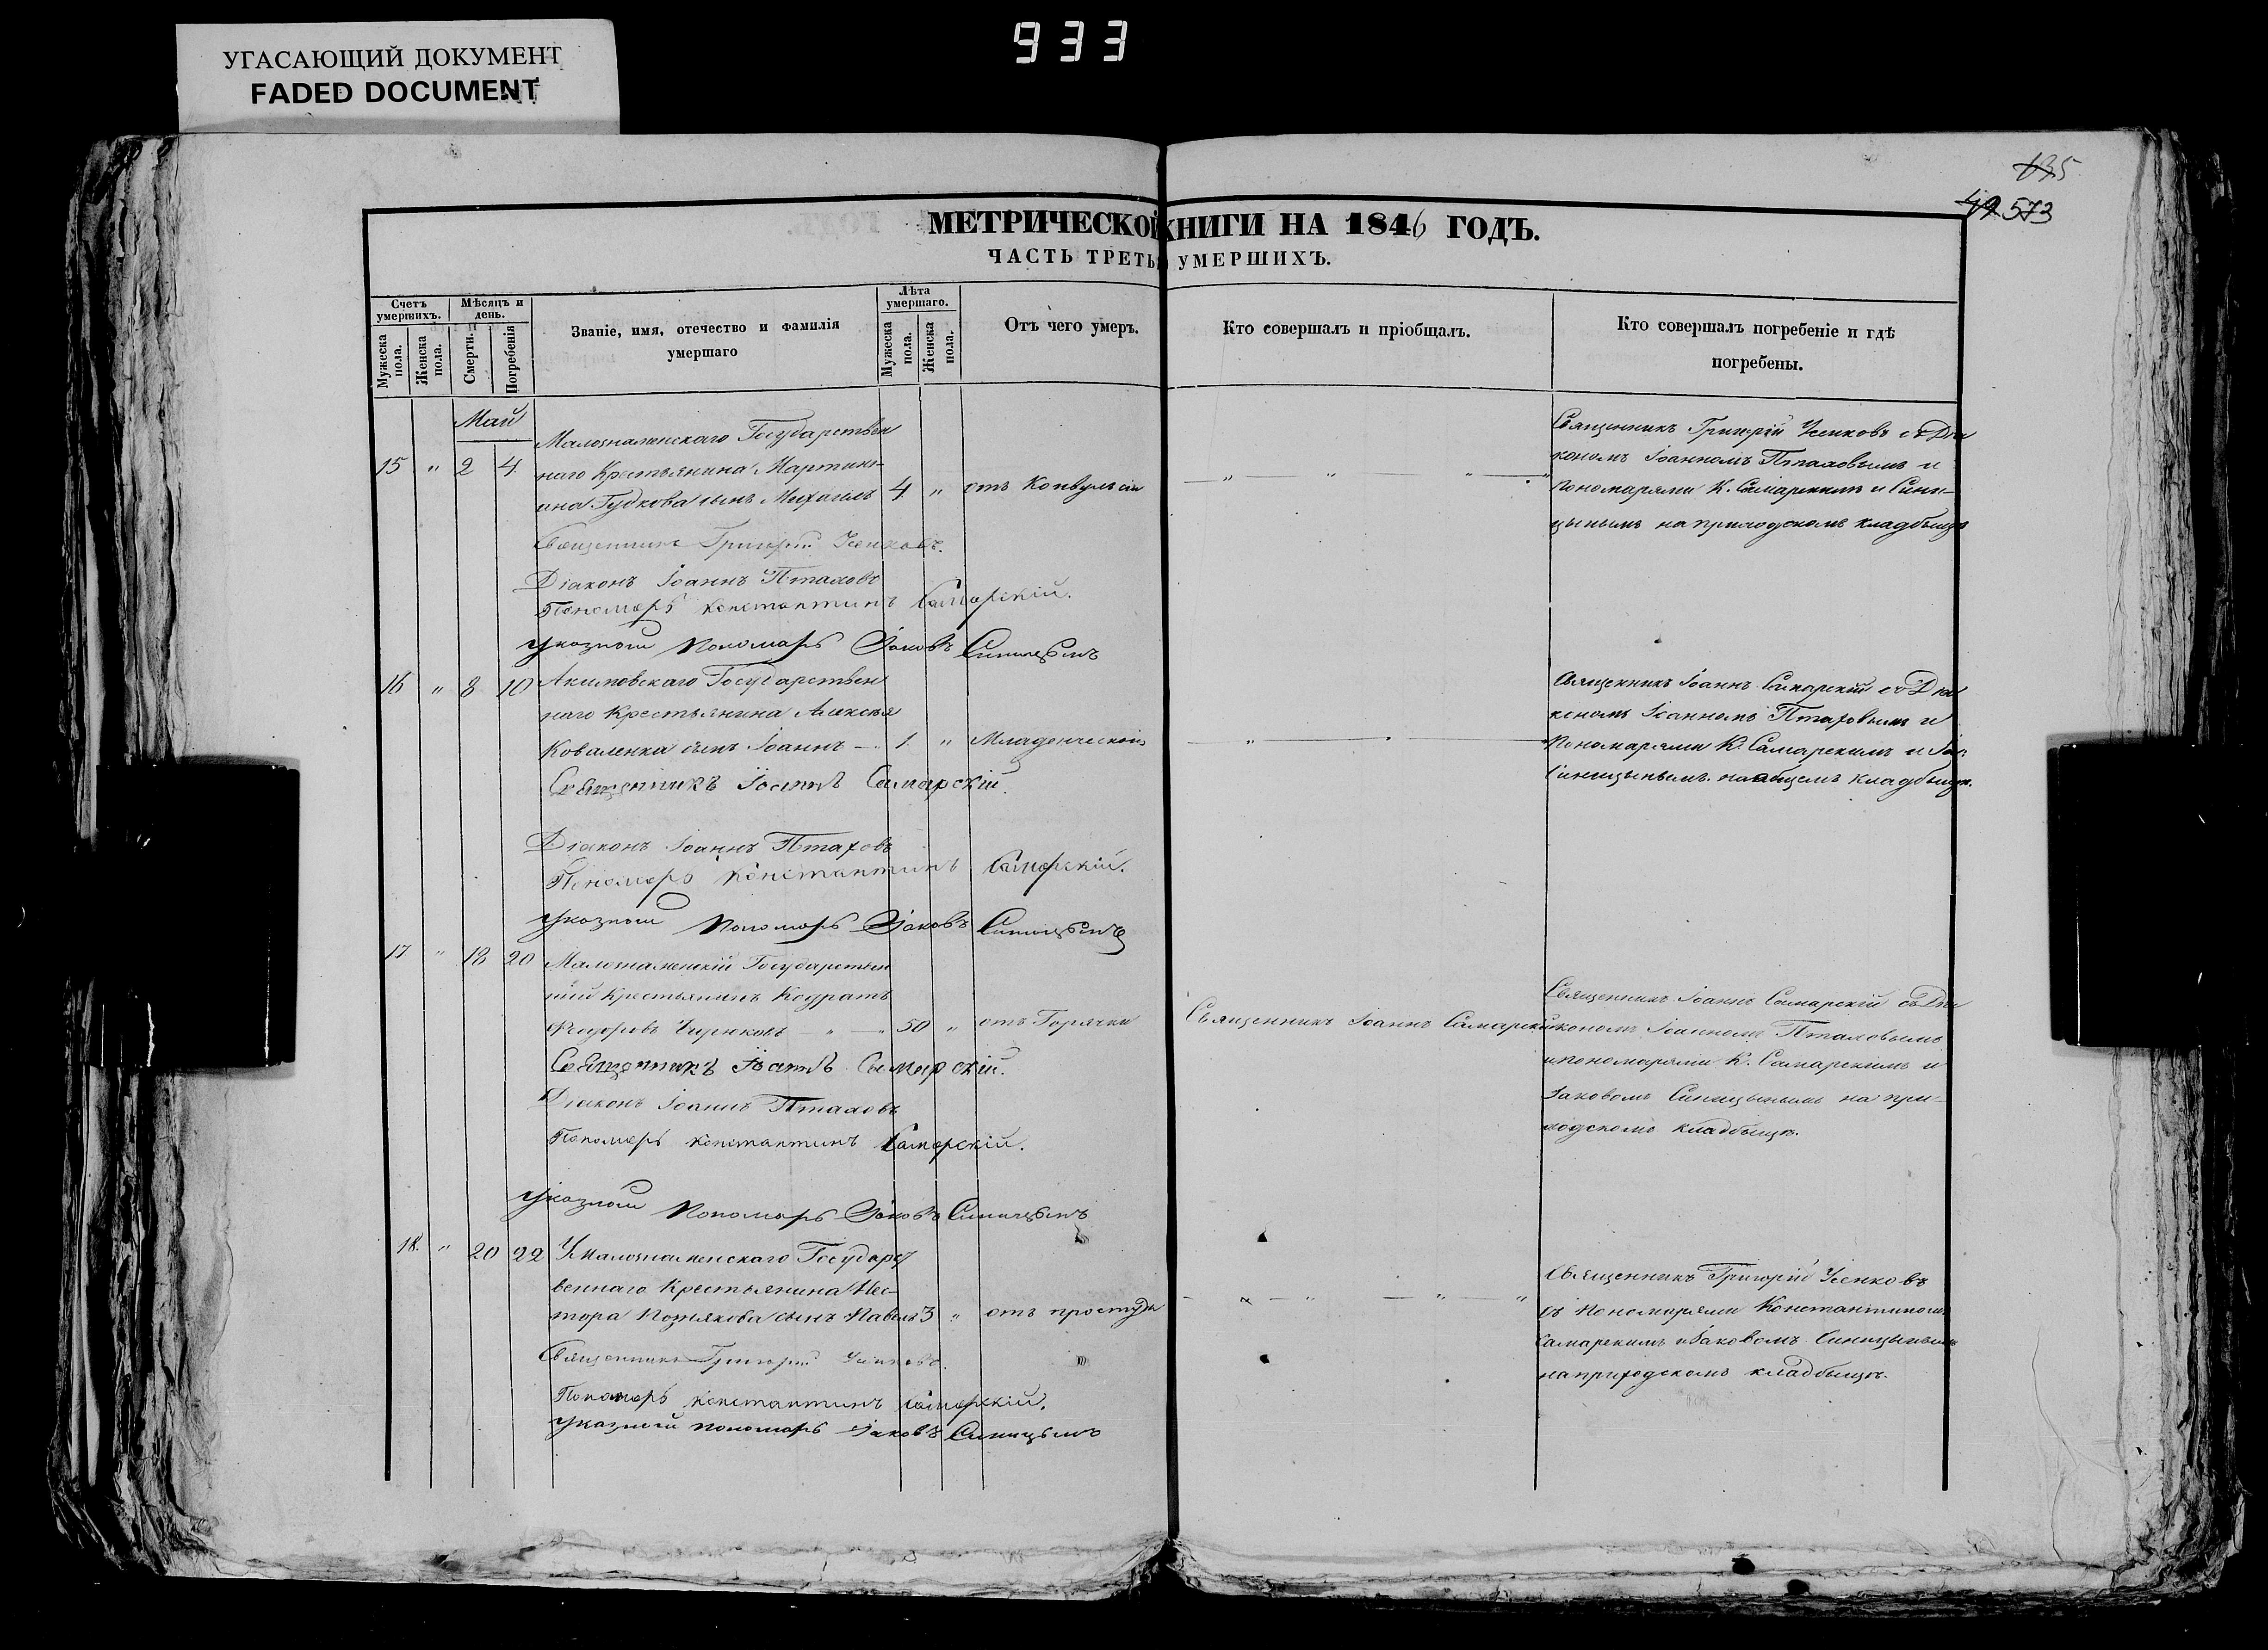 933
УГАСАЮЩИЙ ДОКУМЕНТ
FADED DOCUMENT
135
49 573
МЕТРИЧЕСКОЙ КНИГИ НА 1846 ГОДЪ.
ЧАСТЬ ТРЕТЬЯ УМЕРШИХЪ.
Счетъ умершихъ.
Мужеска пола.
Женска пола.
Мѣсяцъ и день.
Смерти.
Погребенія
Званіе, имя, отечество и фамилія
умершаго
Лѣта умершаго.
Мужеска пола.
Женска пола.
Отъ чего умеръ.
Кто совершалъ и пріобщалъ.
Кто совершалъ погребеніе и гдѣ
погребены.
Май
15 " 2 4
Малознаменскаго Государствен
наго Крестьянина Мартини-
ана Гудкова сынъ Михаилъ 4 " отъ Конвульсіи
Священникъ Григорій Усенковъ съ Діа
кономъ Іоанномъ Птаховымъ и
Пономарями К. Самарскимъ и Сини-
цынымъ на приходскомъ кладбищѣ
Священникъ Григорій Усенковъ.
Діаконъ Іоаннъ Птаховъ
Пономарь Константинъ Самарскій.
Указный Пономарь Іаковъ Синицынъ
16 " 8 10
Акимовскаго Государствен
наго Крестьянина Алексѣя
Коваленка сынъ Іоаннъ — 1 " Младенческой
Священникъ Іоаннъ Самарскій съ Діа
кономъ Іоанномъ Птаховымъ и
Пономарями К. Самарскимъ и
Синицынымъ на общемъ кладбищѣ.
Священникъ Іоаннъ Самарскій.
Діаконъ Іоаннъ Птаховъ
Пономарь Константинъ Самарскій.
Указный Пономарь Іаковъ Синицынъ
17 " 18 20
Малознаменскій Государствен
ный Крестьянинъ Кодратъ
Ѳедоровъ Чирюковъ — " — 50 " отъ Горячки
Священникъ Іоаннъ Самарскій
Священникъ Іоаннъ Самарскій съ Діа
кономъ Іоанномъ Птаховымъ
и пономарями К. Самарскимъ и
Іаковомъ Синицынымъ на при-
ходскомъ кладбищѣ.
Священникъ Іоаннъ Самарскій.
Діаконъ Іоаннъ Птаховъ
Пономарь Константинъ Самарскій.
Указный Пономарь Іаковъ Синицынъ
18. " 20 22
У Малознаменскаго Государст
веннаго Крестьянина Нес-
тора Познякова сынъ Павелъ 3 " отъ простуды
Священникъ Григорій Усенковъ
съ Пономарями Константиномъ
Самарскимъ и Іаковомъ Синицынымъ
на приходскомъ кладбищѣ.
Священникъ Григорій Усенковъ.
Пономарь Константинъ Самарскій.
Указный пономарь Іаковъ Синицынъ